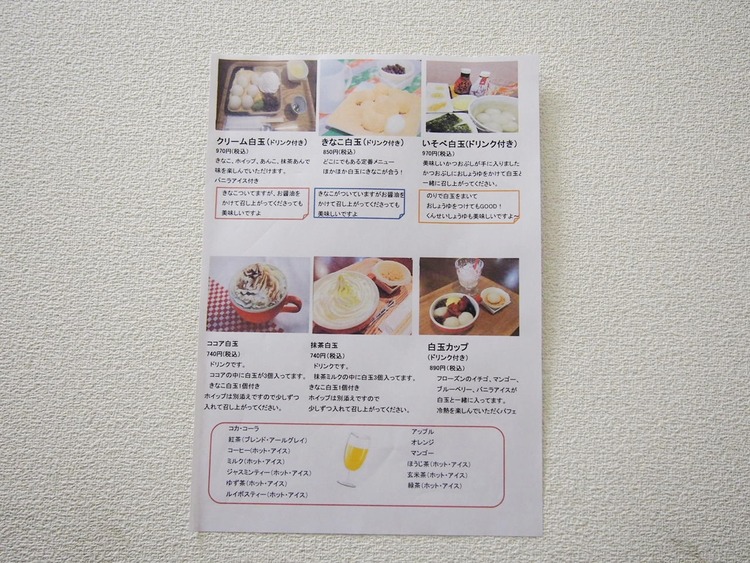 クリーム白玉(ドリンク付き)
970円(税込)
きなこ、ホイップ、あんこ、抹茶あんで
味を楽しんでいただけます。
バニラアイス付き
きなこついてますが、お醤油を
かけて召し上がってくださっても
美味しいですよ
きなこ白玉(ドリンク付き)
850円(税込)
どこにでもある定番メニュー
ほかほか白玉にきなこが合う!
きなこがついていますがお醤油を
かけて召し上がってくださっても
美味しいですよ
いそべ白玉(ドリンク付き)
970円(税込)
美味しいかつおぶしが手に入りました
かつおぶしにおしょうゆをかけて白玉と
一緒に召し上がてください。
のりで白玉をまいて
おしょうゆをつけてもGOOD!
くんせいしょうゆも美味しいですよ～
ココア白玉
740円(税込)
ドリンクです。
ココアの中に白玉が3個入ってます。
きなこ白玉1個付き
ホイップは別添えですので少しずつ
入れて召し上がってください。
抹茶白玉
740円(税込)
ドリンクです。
抹茶ミルクの中に白玉3個入ってます、
きなこ白玉1個付き
ホイップは別添えですので
少しずつ入れて召し上がってください。
白玉カップ
(ドリンク付き)
890円(税込)
フローズンのイチゴ、マンゴー、
ブルーベリー、バニラアイスが
白玉と一緒に入ってます。
冷熱を楽しんでいただくパフェ
コカ・コーラ
紅茶(ブレンド・アールグレイ)
コーヒー(ホット・アイス)
ミルク(ホット・アイス)
ジャスミンティー(ホット・アイス)
ゆず茶(ホット・アイス)
ルイボスティー(ホット・アイス)
アップル
オレンジ
マンゴー
ほうじ茶(ホット・アイス)
玄米茶(ホット・アイス)
緑茶(ホット・アイス)